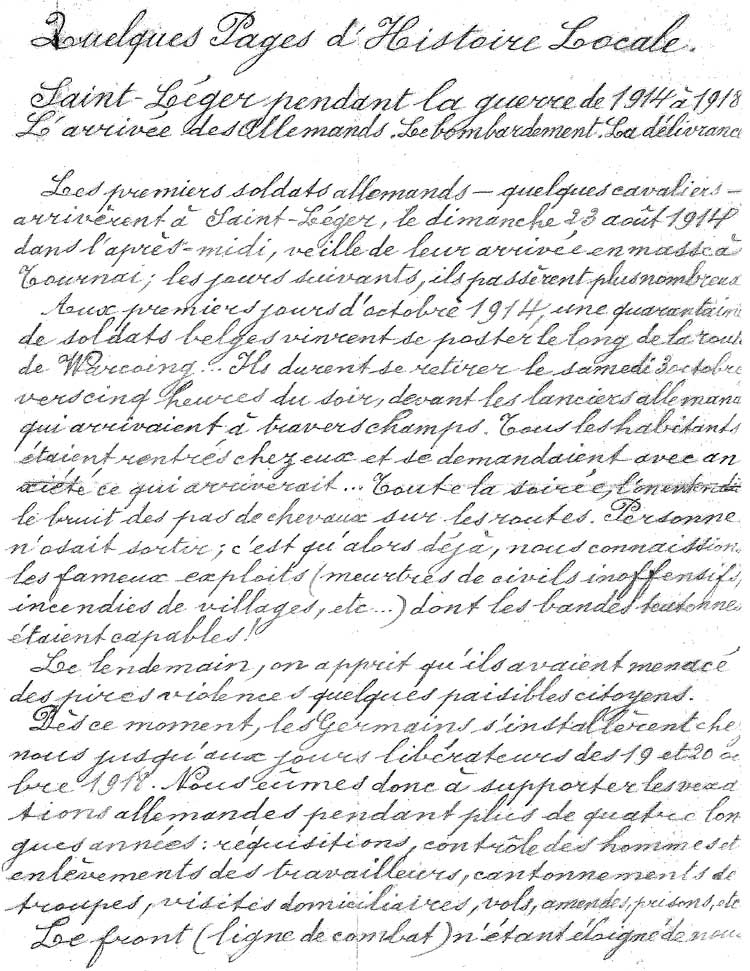 Quelques Pages d'Histoire Locale.
Saint-Léger pendant la guerre de 1914 à 1918
L'arrivée des Allemands. Le bombardement. La délivranc
Les premiers soldats allemands — quelques cavaliers —
arrivèrent à Saint-Léger, le dimanche 23 août 1914
dans l'après-midi, veille de leur arrivée en masse à
Tournai; les jours suivants, ils passèrent plus nombreux
Aux premiers jours d'octobre 1914, une quarantaine
de soldats belges vinrent se poster le long de la route
de Warcoing... Ils durent se retirer le samedi 3 octobre
vers cinq heures du soir, devant les lanciers allemand
qui arrivaient à travers champs. Tous les habitants
étaient rentrés chez eux et se demandaient avec an
xiété ce qui arriverait... Toute la soirée, l'on entendit
le bruit des pas de chevaux sur les routes. Personne
n'osait sortir; c'est qu'alors déjà, nous connaission
les fameux exploits (meurtres de civils inoffensifs,
incendies de villages, etc...) dont les bandes teutonnes
étaient capables!
Le lendemain, on apprit qu'ils avaient menacé
des pires violences quelques paisibles citoyens.
Dès ce moment, les Germains s'installèrent che
nous jusqu'aux jours libérateurs des 19 et 20 oc
bre 1918. Nous eûmes donc à supporter les vexa
tions allemandes pendant plus de quatre lon
gues années: réquisitions, contrôle des hommes et
enlèvements des travailleurs, cantonnements de
troupes, visites domiciliaires, vols, amendes, prisons, etc
Le front (ligne de combat) n'étant éloigné de nous